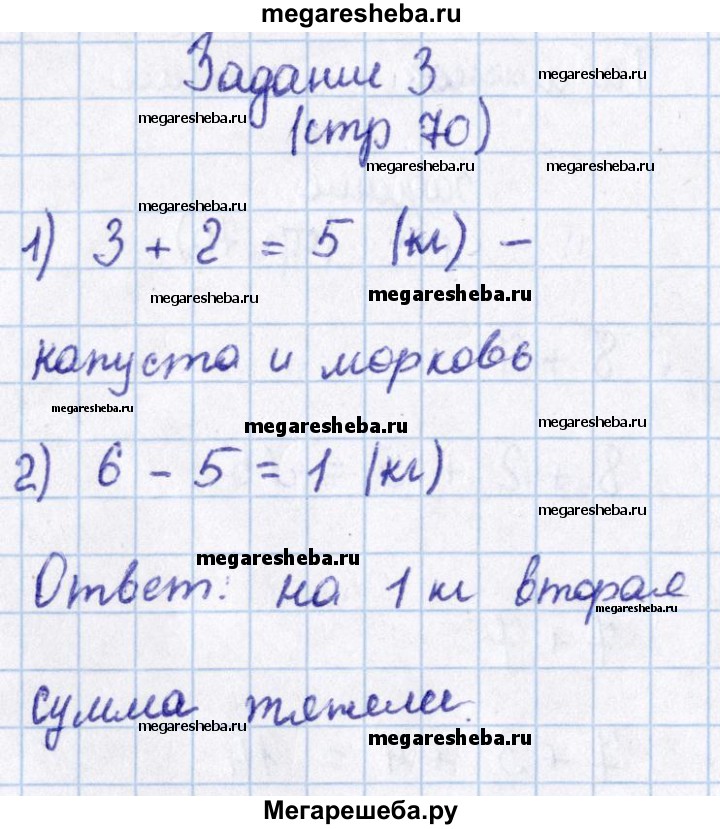 megaresheba.ru
Задание 3
megaresheba.ru
megaresheba.ru
(стр 70)
megaresheba.ru
megaresheba.ru
megaresheba.ru
1) 3 + 2 = 5 (кг) -
megaresheba.ru
megaresheba.ru
капуста и морковь
megaresheba.ru
megaresheba.ru
megaresheba.ru
2) 6 - 5 = 1 (кг)
megaresheba.ru
megaresheba.ru
Ответ: на 1 кг вторая
megaresheba.ru
сумма тяжелее.
megaresheba.ru
megaresheba.ru
Мегарешеба.ру